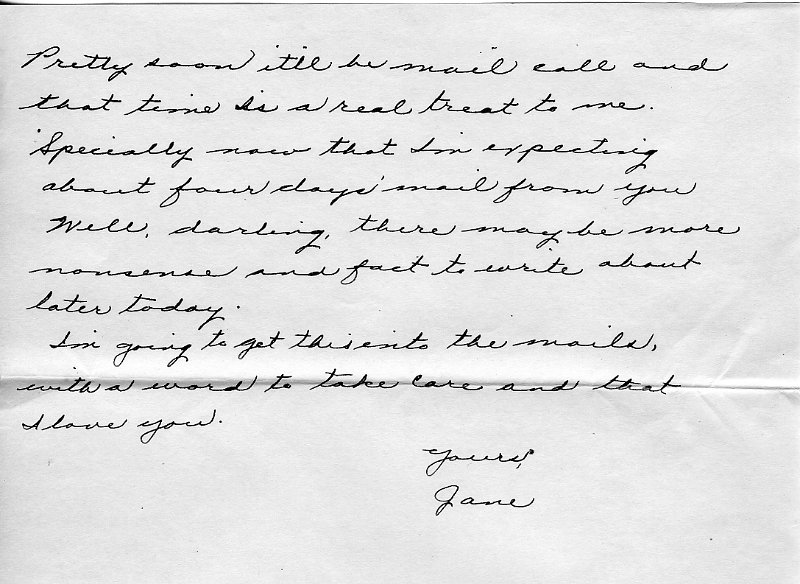 Pretty soon it'll be mail call and
that time is a real treat to me.
'Specially now that I'm expecting
about four days' mail from you
Well, darling, there may be more
nonsense and fact to write about
later today.
I'm going to get this into the mails,
with a word to take care and that
I love you.
Yours,
Jane